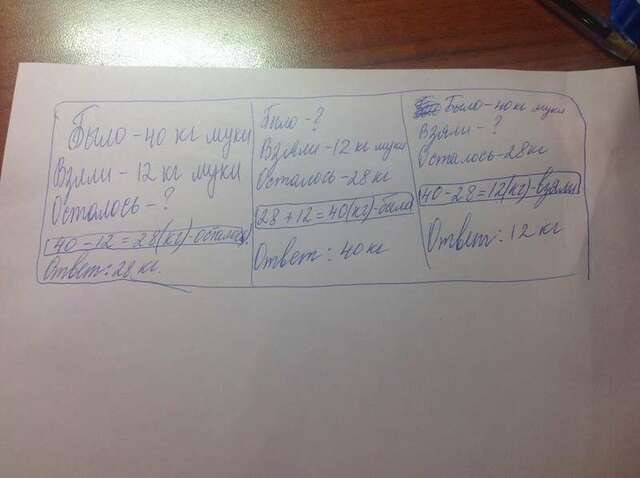 Было - 40 кг муки
Взяли - 12 кг муки
Осталось - ?
40 - 12 = 28 (кг) - осталось.
Ответ: 28 кг.
Было - ?
Взяли - 12 кг муки
Осталось - 28 кг
28 + 12 = 40 (кг) - было
Ответ: 40 кг
Было - 40 кг муки
Взяли - ?
Осталось - 28 кг
40 - 28 = 12 (кг) - взяли
Ответ: 12 кг